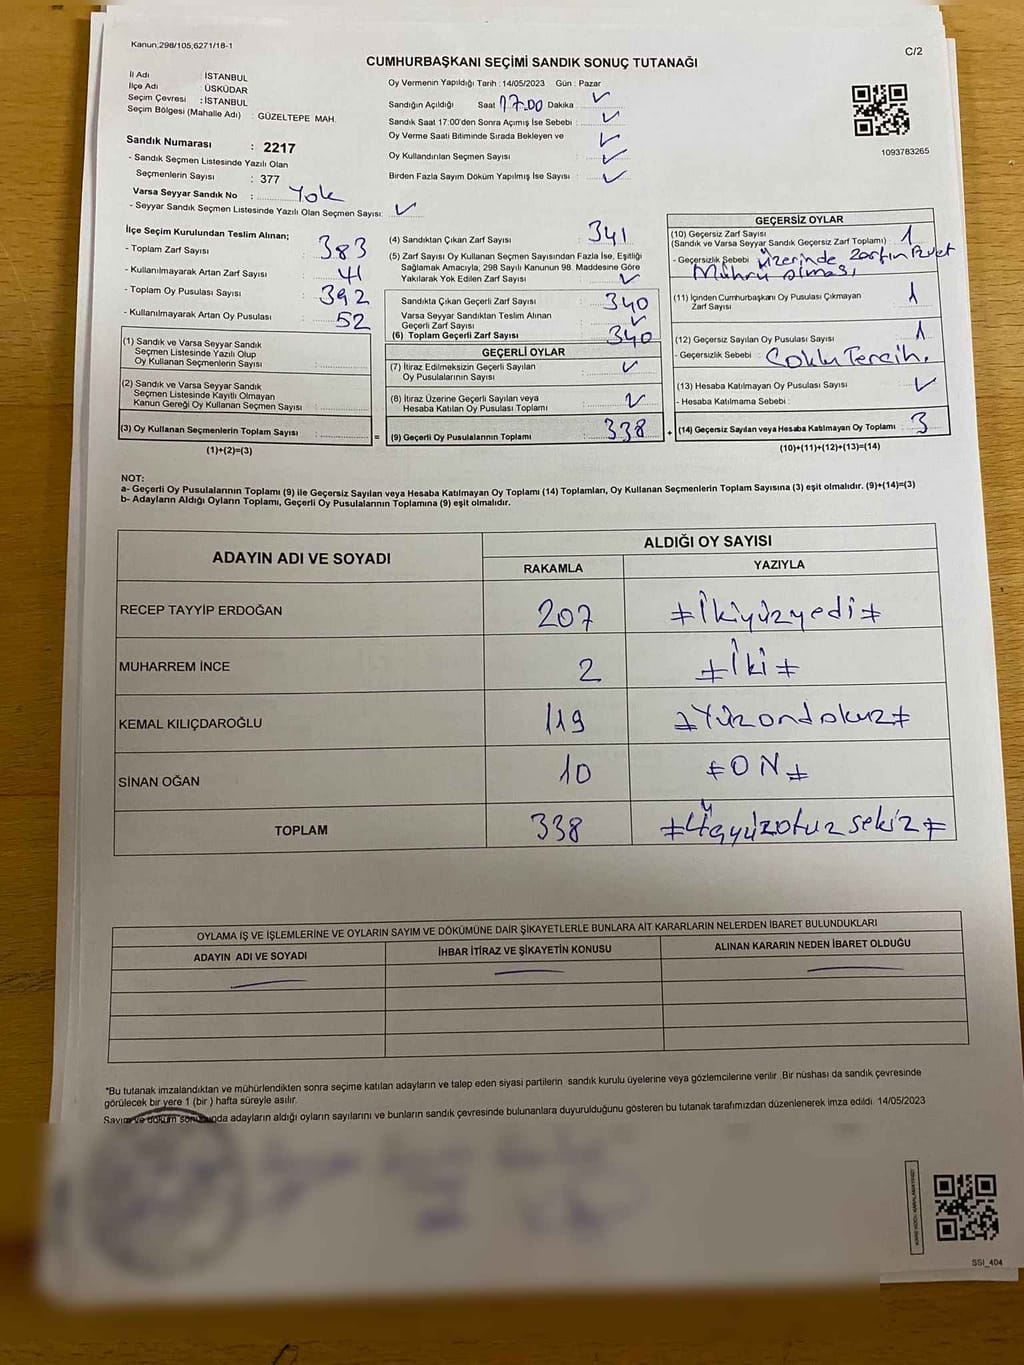 Kanun;298/105,6271/18-1
C/2
CUMHURBAŞKANI SEÇİMİ SANDIK SONUÇ TUTANAĞI
İl Adı İSTANBUL
İlçe Adı ÜSKÜDAR
Seçim Çevresi : İSTANBUL
Seçim Bölgesi (Mahalle Adı) : GÜZELTEPE MAH.
Sandık Numarası : 2217
- Sandık Seçmen Listesinde Yazılı Olan
Seçmenlerin Sayısı : 377
Varsa Seyyar Sandık No : Yok
- Seyyar Sandık Seçmen Listesinde Yazılı Olan Seçmen Sayısı:
Oy Vermenin Yapıldığı Tarih : 14/05/2023 Gün : Pazar
Sandığın Açıldığı Saat 17.00 Dakika :
Sandık Saat 17:00'den Sonra Açımış İse Sebebi :
Oy Verme Saati Bitiminde Sırada Bekleyen ve
Oy Kullandırılan Seçmen Sayısı
Birden Fazla Sayım Döküm Yapılmış İse Sayısı :
1093783265
İlçe Seçim Kurulundan Teslim Alınan;
- Toplam Zarf Sayısı : 383
- Kullanılmayarak Artan Zarf Sayısı : 41
- Toplam Oy Pusulası Sayısı : 392
- Kullanılmayarak Artan Oy Pusulası : 52
(1) Sandık ve Varsa Seyyar Sandık
Seçmen Listesinde Yazılı Olup
Oy Kullanan Seçmenlerin Sayısı :
(2) Sandık ve Varsa Seyyar Sandık
Seçmen Listesinde Kayıtlı Olmayan
Kanun Gereği Oy Kullanan Seçmen Sayısı :
(3) Oy Kullanan Seçmenlerin Toplam Sayısı :
(1)+(2)=(3)
=
(4) Sandıktan Çıkan Zarf Sayısı : 341
(5) Zarf Sayısı Oy Kullanan Seçmen Sayısından Fazla İse, Eşitliği
Sağlamak Amacıyla, 298 Sayılı Kanunun 98. Maddesine Göre
Yakılarak Yok Edilen Zarf Sayısı :
Sandıkta Çıkan Geçerli Zarf Sayısı : 340
Varsa Seyyar Sandıktan Teslim Alınan
Geçerli Zarf Sayısı :
(6) Toplam Geçerli Zarf Sayısı : 340
GEÇERLİ OYLAR
(7) İtiraz Edilmeksizin Geçerli Sayılan
Oy Pusulalarının Sayısı :
(8) İtiraz Üzerine Geçerli Sayılan veya
Hesaba Katılan Oy Pusulası Toplamı :
(9) Geçerli Oy Pusulalarının Toplamı : 338
+
GEÇERSİZ OYLAR
(10) Geçersiz Zarf Sayısı
(Sandık ve Varsa Seyyar Sandık Geçersiz Zarf Toplamı) : 1
- Geçersizlik Sebebi : üzerinde zarfın evet
Mührü olması
(11) İçinden Cumhurbaşkanı Oy Pusulası Çıkmayan
Zarf Sayısı 1
(12) Geçersiz Sayılan Oy Pusulası Sayısı : 1
- Geçersizlik Sebebi : Çoklu Tercih.
(13) Hesaba Katılmayan Oy Pusulası Sayısı :
- Hesaba Katılmama Sebebi :
(14) Geçersiz Sayılan veya Hesaba Katılmayan Oy Toplamı : 3
(10)+(11)+(12)+(13)=(14)
NOT:
a- Geçerli Oy Pusulalarının Toplamı (9) ile Geçersiz Sayılan veya Hesaba Katılmayan Oy Toplamı (14) Toplamları, Oy Kullanan Seçmenlerin Toplam Sayısına (3) eşit olmalıdır. (9)+(14)=(3)
b- Adayların Aldığı Oyların Toplamı, Geçerli Oy Pusulalarının Toplamına (9) eşit olmalıdır.
ADAYIN ADI VE SOYADI ALDIĞI OY SAYISI
RAKAMLA YAZIYLA
RECEP TAYYİP ERDOĞAN 207 ≠İkiyüzyedi≠
MUHARREM İNCE 2 ≠İki≠
KEMAL KILIÇDAROĞLU 119 ≠Yüzondokuz≠
SİNAN OĞAN 10 ≠ON≠
TOPLAM 338 ≠Üçyüzotuzsekiz≠
OYLAMA İŞ VE İŞLEMLERİNE VE OYLARIN SAYIM VE DÖKÜMÜNE DAİR ŞİKAYETLERLE BUNLARA AİT KARARLARIN NELERDEN İBARET BULUNDUKLARI
ADAYIN ADI VE SOYADI İHBAR İTİRAZ VE ŞİKAYETİN KONUSU ALINAN KARARIN NEDEN İBARET OLDUĞU
*Bu tutanak imzalandıktan ve mühürlendikten sonra seçime katılan adayların ve talep eden siyasi partilerin sandık kurulu üyelerine veya gözlemcilerine verilir. Bir nüshası da sandık çevresinde
görülecek bir yere 1 (bir) hafta süreyle asılır.
Sayım ve döküm sonucunda adayların aldığı oyların sayılarını ve bunların sandık çevresinde bulunanlara duyurulduğunu gösteren bu tutanak tarafımızdan düzenlenerek imza edildi. 14/05/2023
SSI_404